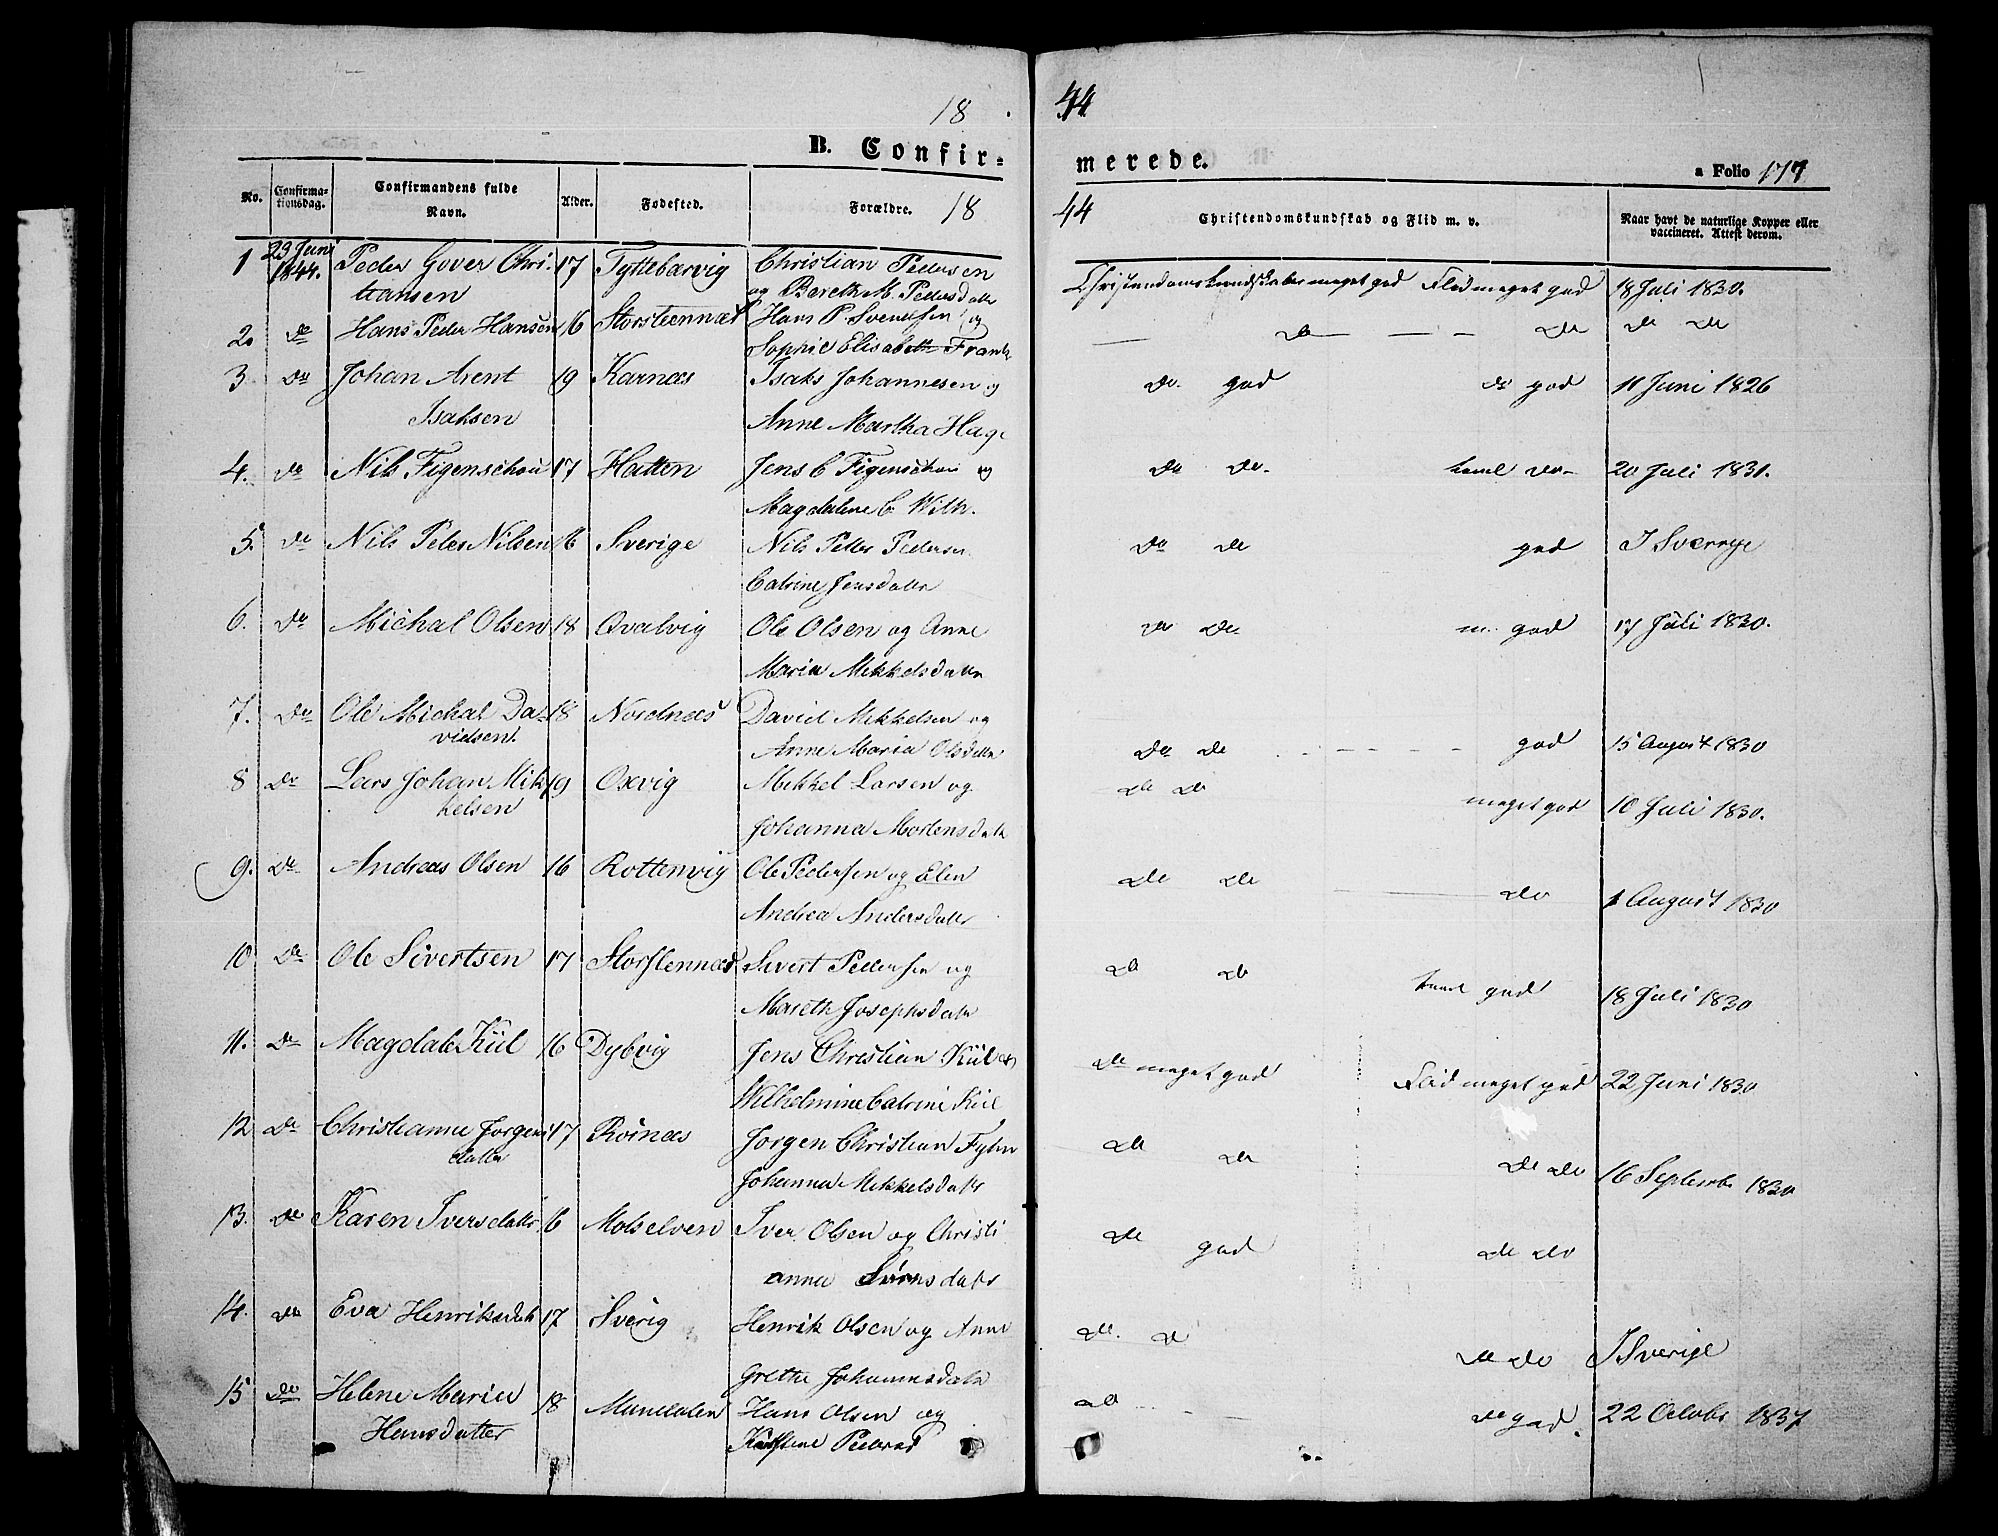 18 44
B. Confir- merede. a Folio 177
No. Confirma-tionsdag. Confirmandens fulde Navn. Alder. Fodested. Forældre. 18 44 Christendomskundskab og Flid m. v. Naar havt de naturlige Kopper eller vaccineret. Attest derom.
1 23 Juni 1844. Peder Gover Chri- 17 Tyttebærvig Christian Pedersen Christendomskundskaber meget god Flid meget god 18 Juli 1830.
tiansen og Bereth M. Pedersdatr
2. do Hans Peder Hansen 16 Storsteennæs Hans P. Svendsen og do do do do
Sophie Elisabeth Frank
3. do Johan Arent 19 Karnæs Isaks Johannesen og do. god do god 11 Juni 1826
Isaksen Anne Martha Hage
4. do Nils Figenschou 17 Hatten Jens C Figenschou og do do- do- 20 Juli 1831.
Magdalene C With.
5. do Nils Peter Nilsen 16 Sverige Nils Peter Pedersen do do god I Sverrige
Catrine Jensdatr
6. do Michal Olsen 18 Qvalvig Ole Olsen og Anne do do. m. god 17 Juli 1830.
Maria Mikkelsdatr
7. do Ole Michal Da- 18 Nordnæs David Mikkelsen og
vidsen. Anne Maria Olsdatr do do god 15 August 1830
8 do Lars Johan Mik 19 Oxvig Mikkel Larsen og do do meget god 10 Juli 1830.
kelsen Johanna Mortensdatr
9. do Andreas Olsen 16 Rottenvig Ole Pedersen og Elen do do do 1 August 1830
Andrea Andersdatr
10 do Ole Sivertsen 17 Storstennæs Sivert Pedersen og do do god 18 Juli 1830
Mareth Josephsdatr
11. do Magdale Kiil 16 Dybvig Jens Christian Kiil og do meget god Flid meget god 22 Juni 1830
Wilhelmine Catrine Kiil
12 do Christianne Jorgens 17 Roinæs Jorgen Christian Fyhn do do do do 16 Septemb. 1830
datter Johanna Mikkelsdatr
13. do Karen Iversdatr. 16 Molselven Iver Olsen og Christi do god do do
anna Sørensdatr
14. do Eva Henriksdatr 17 Sverig Henrik Olsen og Anne do. do do do I Sverige
Grethe Johannesdatr
15 do Helene Maria 18 Mandalen Hans Olsen og do do god. 22 Octobr 1837
Hansdatter Kirstine Pedersd